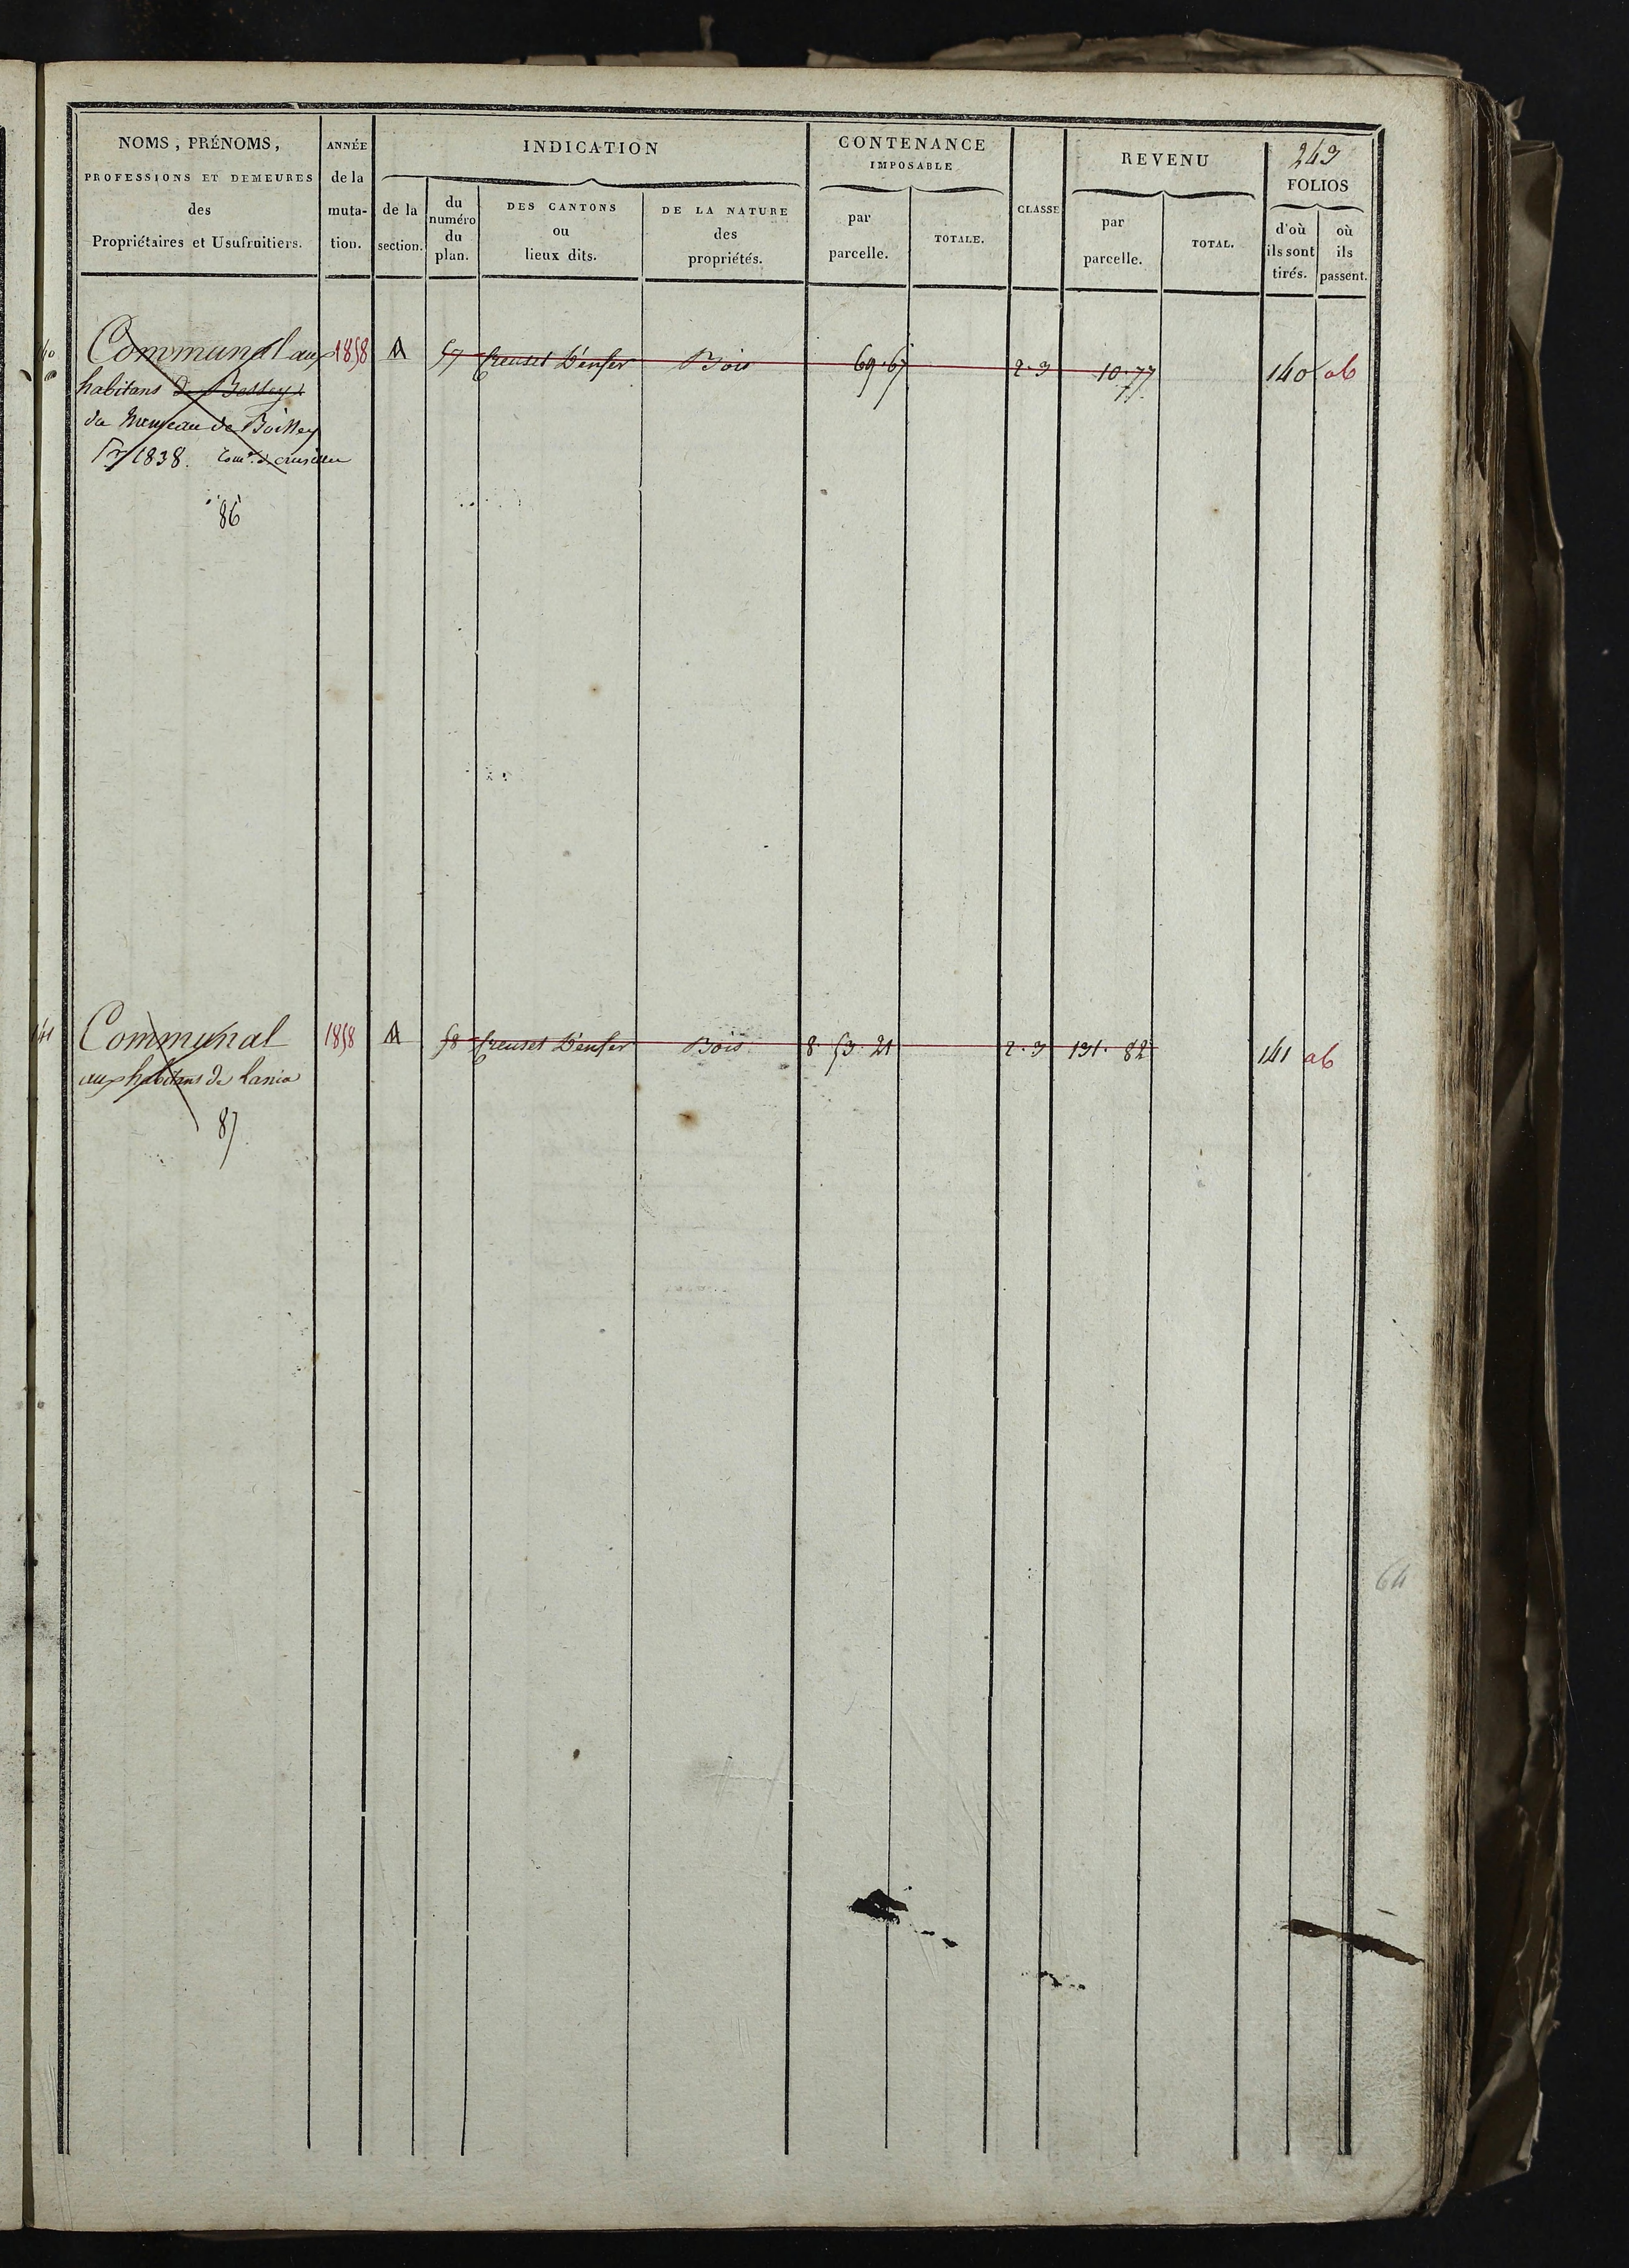 243
NOMS, PRÉNOMS,
PROFESSIONS ET DEMEURES
des
Propriétaires et Usufruitiers.
ANNÉE
de la
muta-
tion.
INDICATION
de la
section.
du
numéro
du
plan.
DES CANTONS
ou
lieux dits.
DE LA NATURE
des
propriétés.
CONTENANCE
IMPOSABLE
par
parcelle.
TOTALE.
CLASSE
REVENU
par
parcelle.
TOTAL.
FOLIOS
d'où
ils sont
tirés.
où
ils
passent.
Communal aux 1858 A 57 Creuset D'enfer Bois 69. 67 2.3 10.77 140 ab
habitans de Bossey
du hameau de Boissey
1838.
86
141 Communal 1858 A 58 Creuset D'enfer Bois 8. 53. 21 2.3 131. 82 141 ab
aux habitans de
87
64